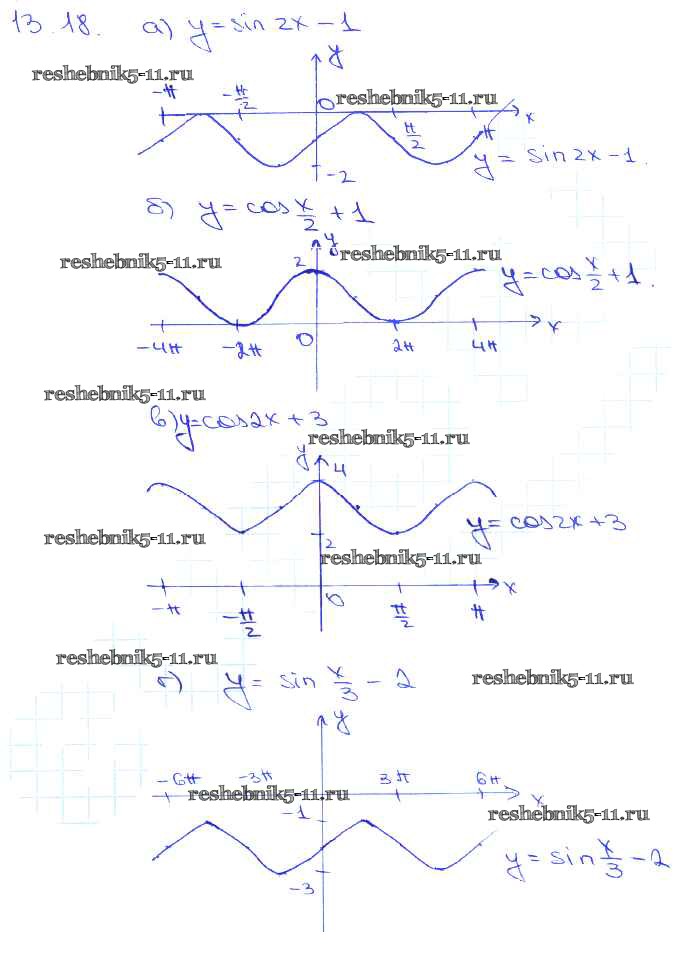 13.18. а) y = sin 2x − 1
reshebnik5-11.ru
y
−π
−π/2
0
reshebnik5-11.ru
x
π/2
π
−2
y = sin 2x − 1.
б) y = cos x/2 + 1
reshebnik5-11.ru
y
reshebnik5-11.ru
2
y = cos x/2 + 1.
−4π
−2π
0
2π
4π
x
reshebnik5-11.ru
в) y = cos 2x + 3
reshebnik5-11.ru
y
4
reshebnik5-11.ru
2
y = cos 2x + 3
reshebnik5-11.ru
−π
−π/2
0
π/2
π
x
reshebnik5-11.ru
г) y = sin x/3 − 2
reshebnik5-11.ru
y
−6π
−3π
3π
6π
reshebnik5-11.ru
x
−1
reshebnik5-11.ru
y = sin x/3 − 2
−3